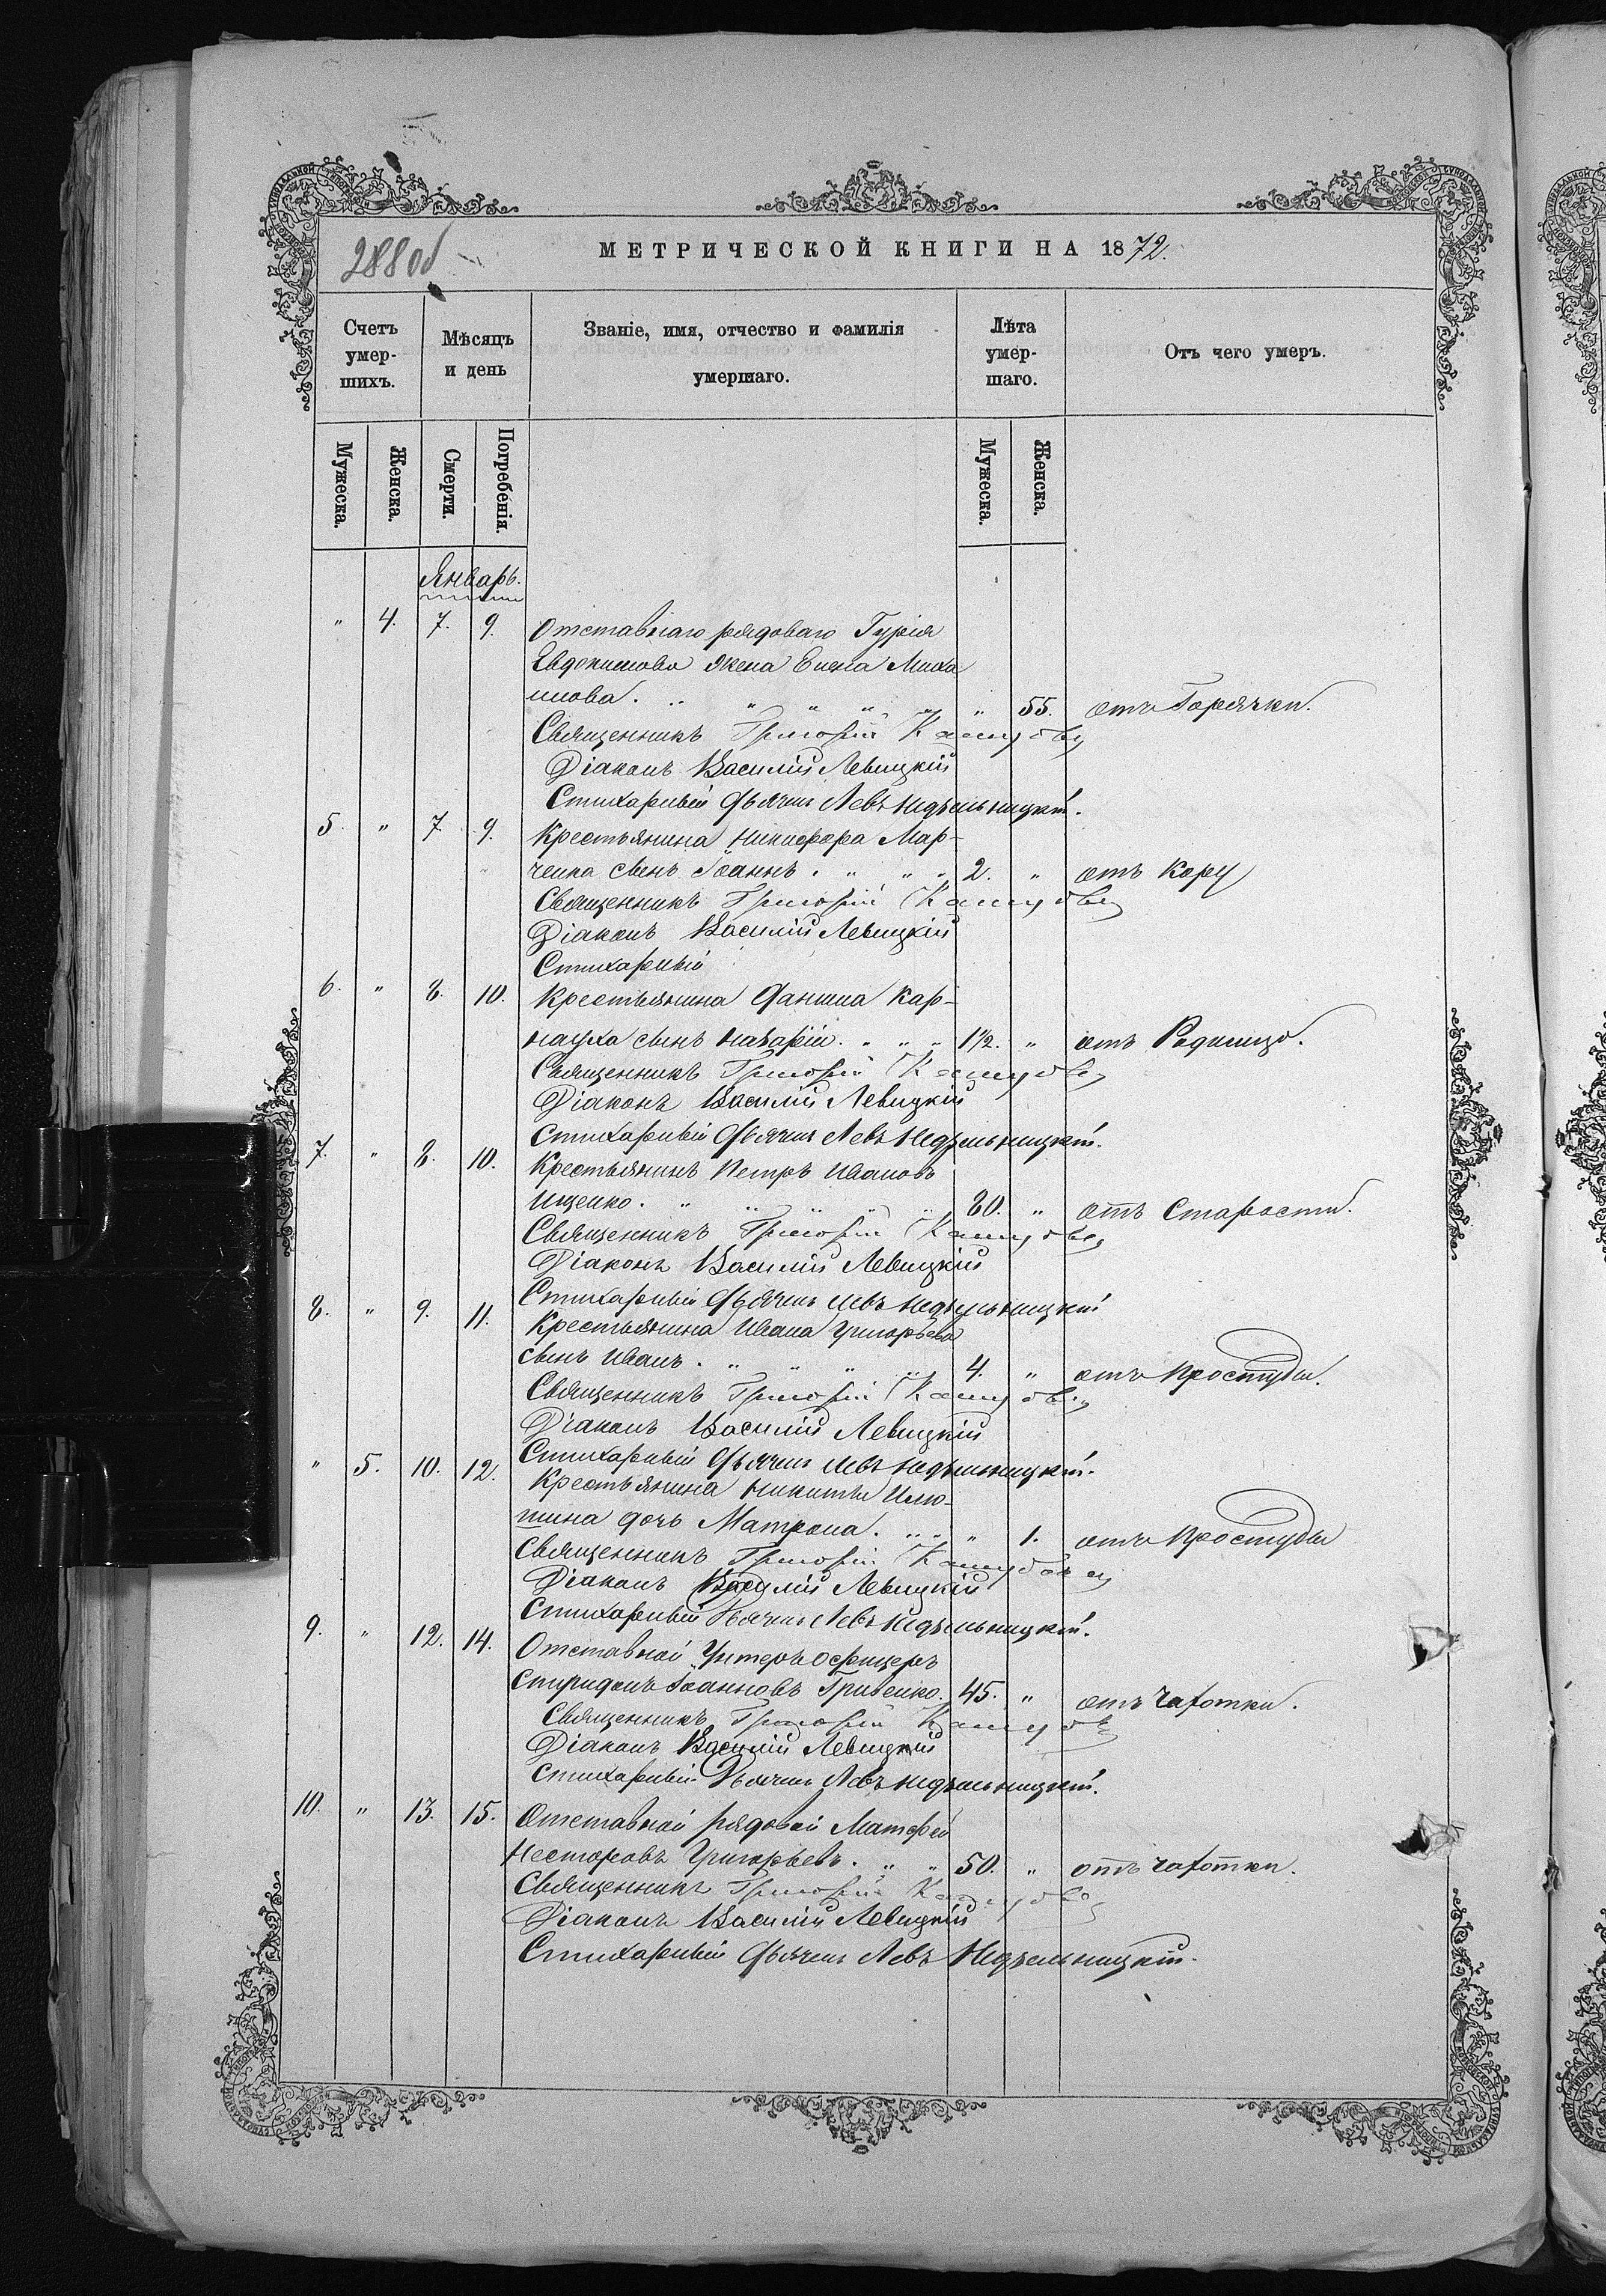 288 об
МЕТРИЧЕСКОЙ КНИГИ НА 1872.
Счетъ умер- шихъ.
Мѣсяцъ и день
Званіе, имя, отчество и фамилія умершаго.
Лѣта умер- шаго.
Отъ чего умеръ.
Мужеска. Женска. Смерти. Погребенія. Мужеска. Женска.
Январь.
" 4. 7. 9. Отставнаго рядоваго Гурія
Евдокимова жена Енна Миха
илова. " " " " " " 55. отъ Горячки.
Священникъ Григорій
Діаконъ Василій Левицкій
Стихарный Дьячекъ Левъ Недѣльницкій.
5. " 7. 9. Крестьянина Никифора Мар-
ченка сынъ Іоаннъ. " " " 2. " отъ Кору
Священникъ Григорій
Діаконъ Василій Левицкій
Стихарный
6. " 8. 10. Крестьянина Данила Кар-
науха сынъ Назарій. " " " 1½. " отъ Родимца.
Священникъ Григорій
Діаконъ Василій Левицкій
Стихарный Дьячекъ Левъ Недѣльницкій.
7. " 8. 10. Крестьянинъ Петръ Ивановъ
Ищенко. " " " " " 80. " отъ Старости.
Священникъ Григорій
Діаконъ Василій Левицкій
Стихарный Дьячекъ Левъ Недѣльницкій
8. " 9. 11. Крестьянина Ивана Григорьева
сынъ Иванъ. " " " " " 4. " отъ Простуды.
Священникъ Григорій
Діаконъ Василій Левицкій
Стихарный Дьячекъ Левъ Недѣльницкій.
" 5. 10. 12. Крестьянина Никиты Илю-
шина дочь Матрона. " " " 1. отъ Простуды
Священникъ Григорій
Діаконъ Василій Левицкій
Стихарный Дьячекъ Левъ Недѣльницкій.
9. " 12. 14. Отставной Унтеръ Офицеръ
Спиридонъ Іоанновъ Гриценко. 45. " отъ Чахотки.
Священникъ Григорій
Діаконъ Василій Левицкій
Стихарный Дьячекъ Левъ Недѣльницкій.
10. " 13. 15. Отставной рядовой Матфей
Несторовъ Григорьевъ. " " 50. " отъ Чахотки.
Священникъ Григорій
Діаконъ Василій Левицкій
Стихарный Дьячекъ Левъ Недѣльницкій.